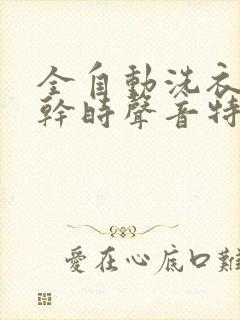 全自動洗衣
幹時聲音特
愛在心底口難